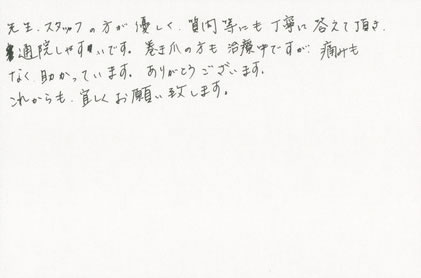 先生、スタッフの方が優しく、質問等にも丁寧に答えて頂き、
通院しやすいです。巻き爪の方も治療中ですが、痛みも
なく、助かっています。ありがとうございます。
これからも、宜しくお願い致します。